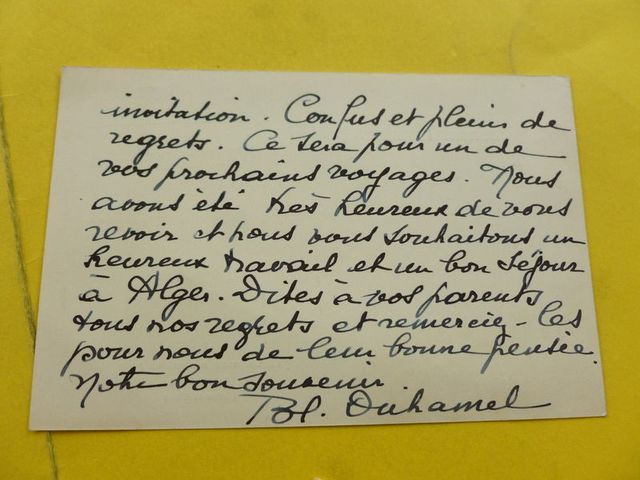 invitation. Confus et pleins de
regrets. Ce sera pour un de
vos prochains voyages. Nous
avons été très heureux de vous
revoir et nous vous souhaitons un
heureux travail et un bon séjour
à Alger. Dites à vos parents
tous nos regrets et remerciez-les
pour nous de leur bonne pensée.
Notre bon souvenir.
Bl. Duhamel